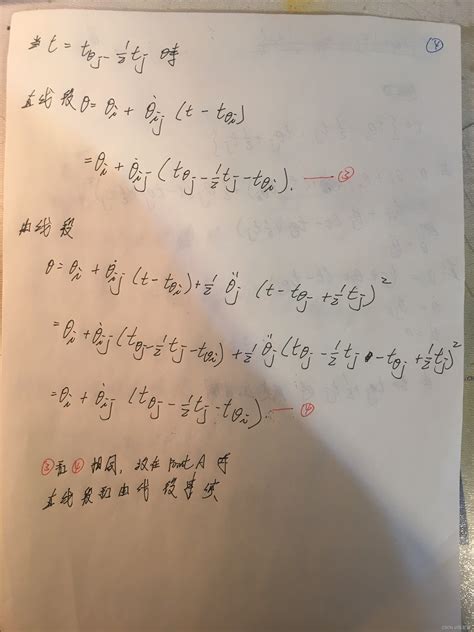 ④
当 t = t_{θj} - ½t_j 时
直线段 θ = θ_i + θ̇_{ij} (t - t_{θi})
= θ_i + θ̇_{ij} (t_{θj} - ½t_j - t_{θi}). —— ③
曲线段
θ = θ_i + θ̇_{ij} (t - t_{θi}) + ½ θ̈_j (t - t_{θj} + ½t_j)²
= θ_i + θ̇_{ij} (t_{θj} - ½t_j - t_{θi}) + ½ θ̈_j (t_{θj} - ½t_j - t_{θj} + ½t_j)²
= θ_i + θ̇_{ij} (t_{θj} - ½t_j - t_{θi}). —— ④
③和④相同, 故在 point A 时
直线段和曲线段连续